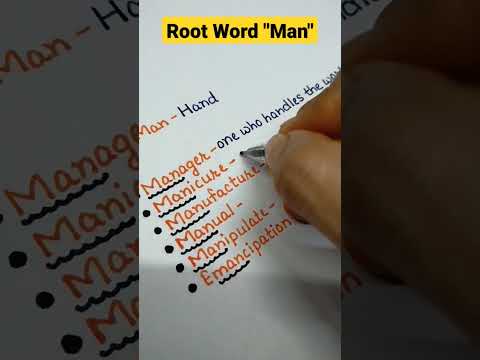 Root Word "Man"
Man - Hand
Manager - one who handles the
Manicure -
Manufacture -
Manual -
Manipulate -
Emancipation